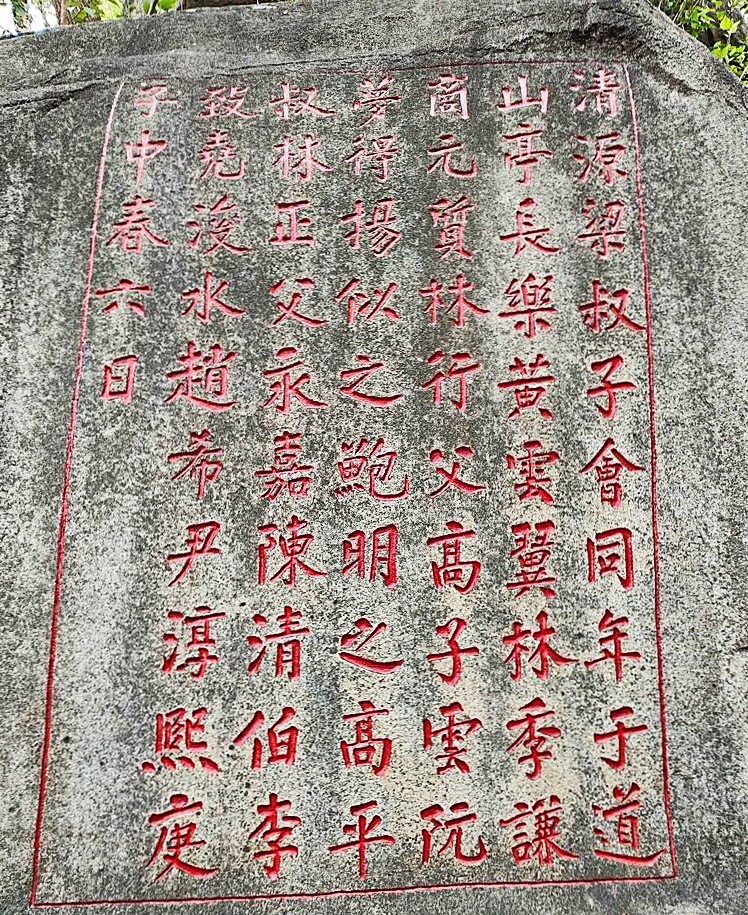 清源梁叔子會同年于道
山亭長樂黃雲翼林季謙
商元質林行父高子雲阮
夢得揚似之鮑明之高平
叔林正父永嘉陳清伯李
致堯浚水趙希尹淳熙庚
子中春六日